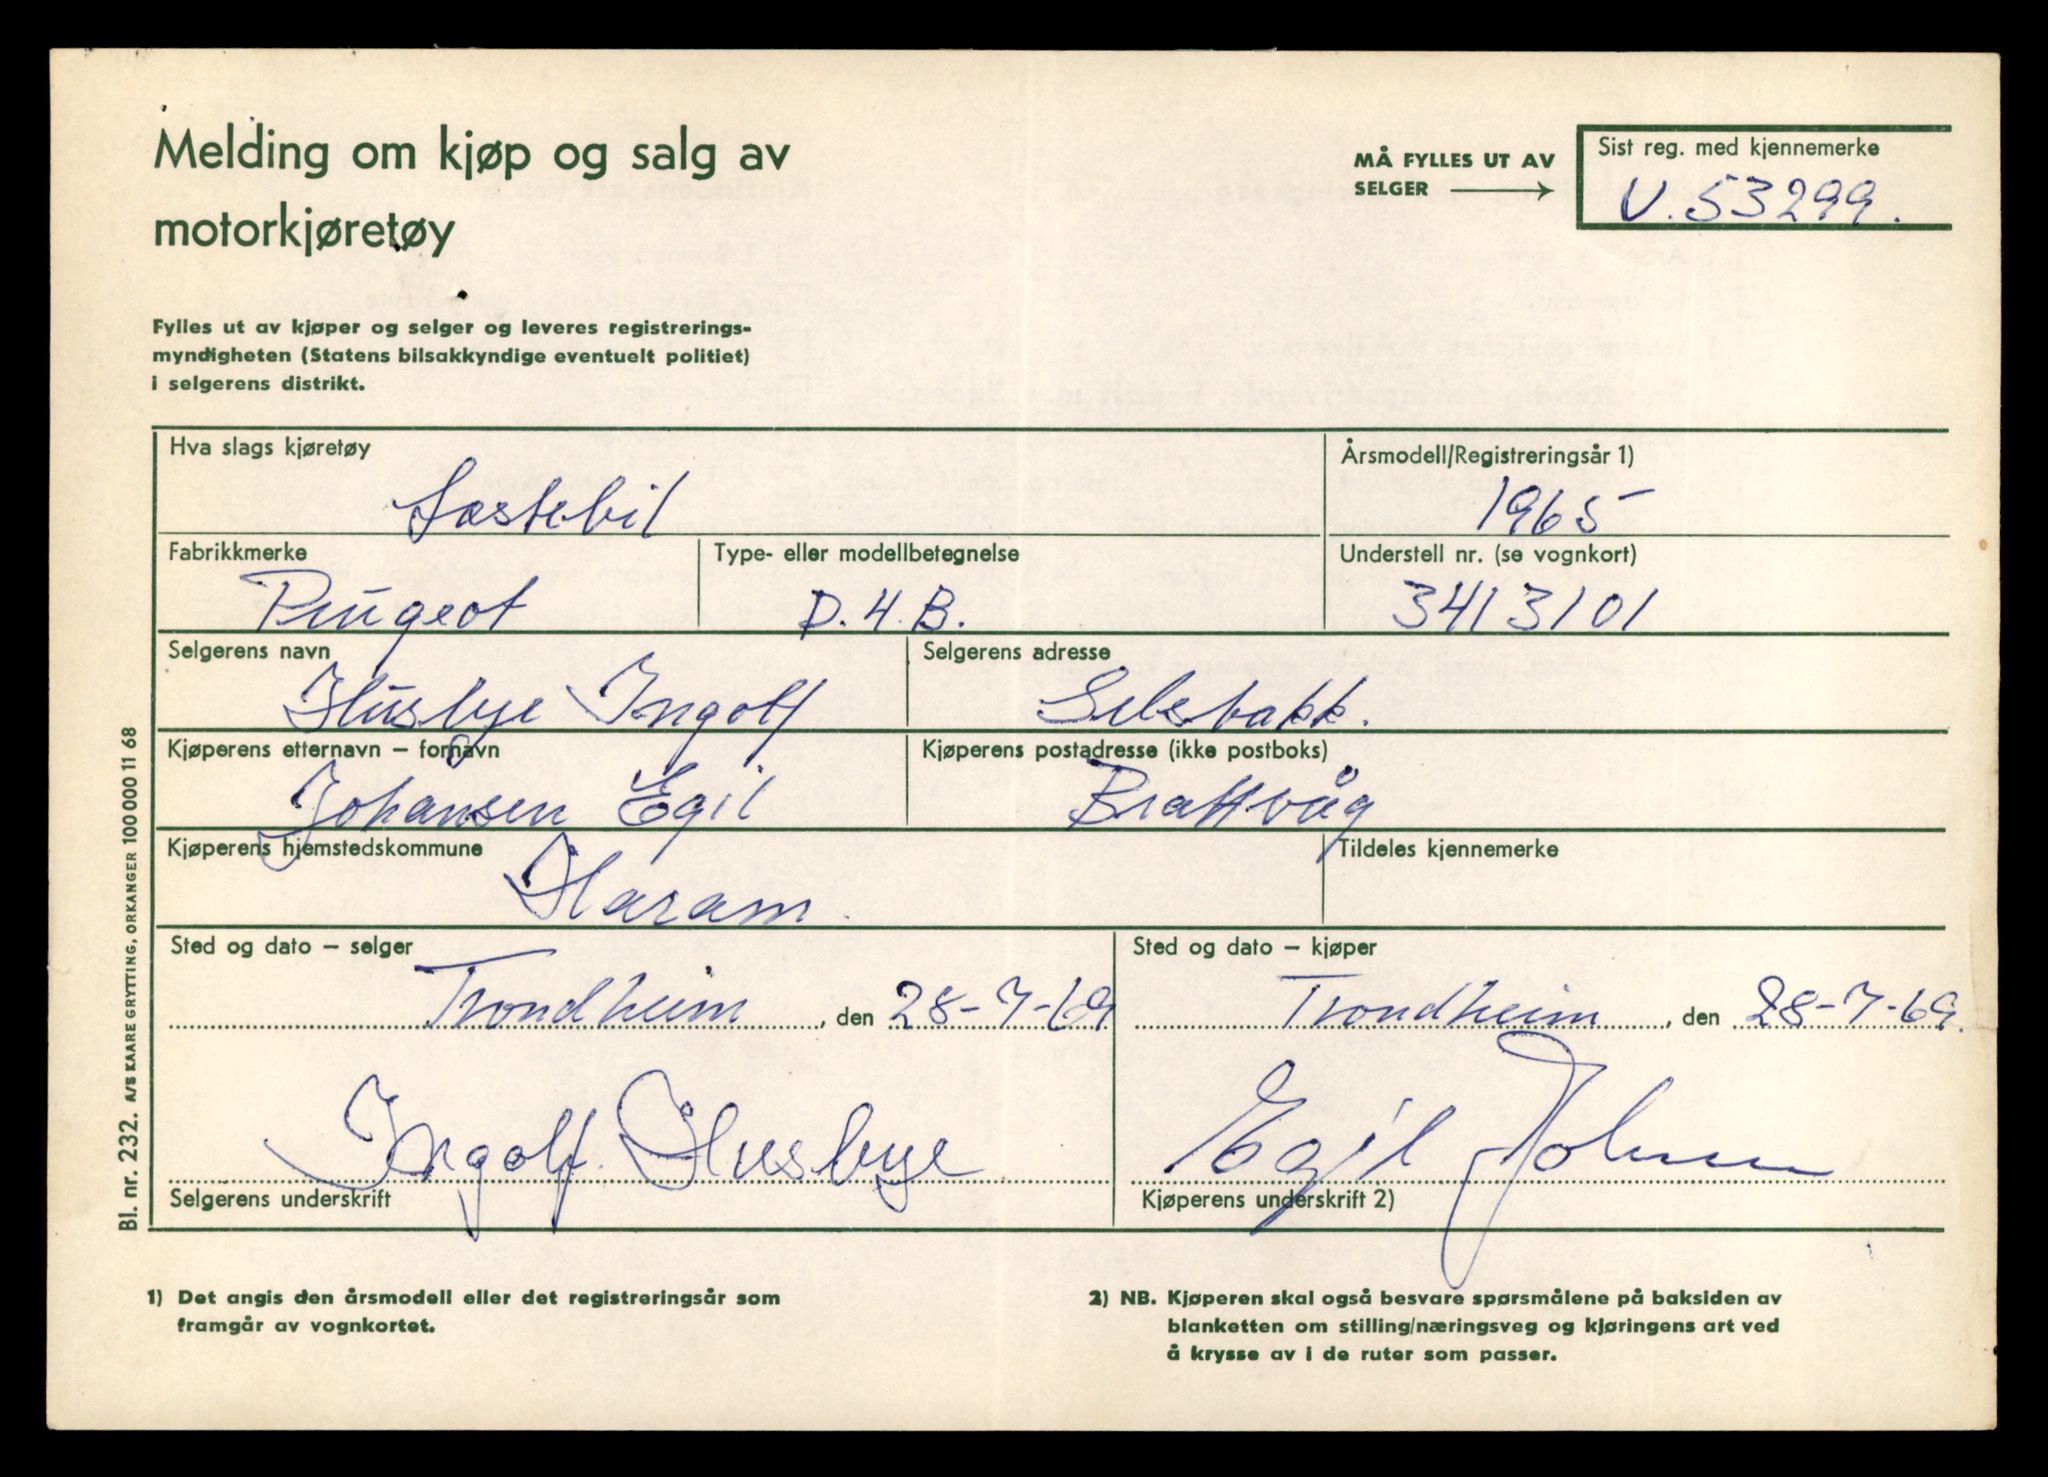 Melding om kjøp og salg av
motorkjøretøy
MÅ FYLLES UT AV
SELGER
Sist reg. med kjennemerke
V. 53299.
Fylles ut av kjøper og selger og leveres registrerings-
myndigheten (Statens bilsakkyndige eventuelt politiet)
i selgerens distrikt.
Hva slags kjøretøy
Lastebil
Årsmodell/Registreringsår 1)
1965
Fabrikkmerke
Peugeot
Type- eller modellbetegnelse
D.4.B.
Understell nr. (se vognkort)
3413101
Selgerens navn
Husbye Ingolf
Selgerens adresse
Selsbakk.
Kjøperens etternavn – fornavn
Johansen Egil
Kjøperens postadresse (ikke postboks)
Brattvåg
Kjøperens hjemstedskommune
Haram.
Tildeles kjennemerke
Sted og dato – selger
Trondheim, den 28-7-69
Sted og dato – kjøper
Trondheim, den 28-7-69.
Ingolf Husbye
Selgerens underskrift
Egil Johansen
Kjøperens underskrift 2)
1) Det angis den årsmodell eller det registreringsår som
framgår av vognkortet.
2) NB. Kjøperen skal også besvare spørsmålene på baksiden av
blanketten om stilling/næringsveg og kjøringens art ved
å krysse av i de ruter som passer.
Bl. nr. 232. A/S KAARE GRYTTING, ORKANGER 100 000 11 68